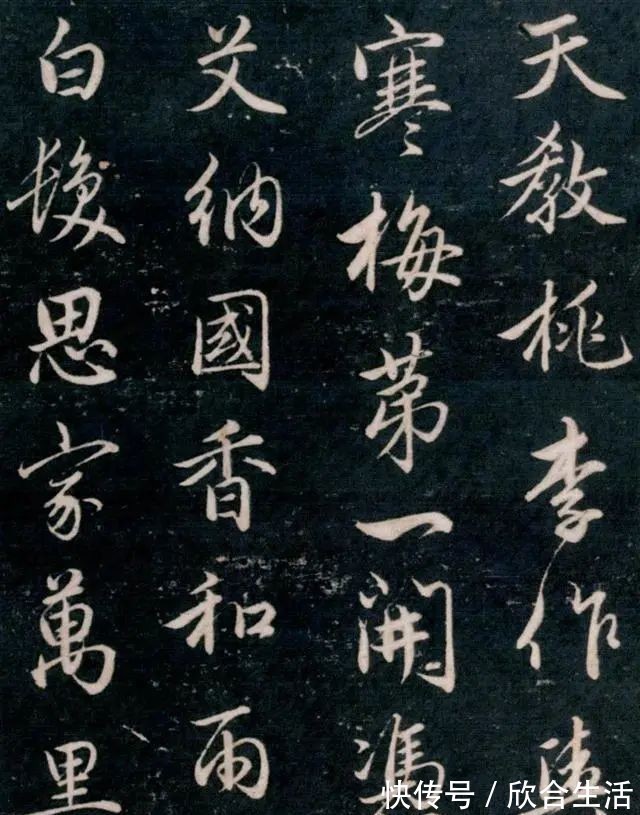 天教桃李作
寒梅第一開馮
艾納國香和雨
白髮思家萬里
快传号 / 欣合生活